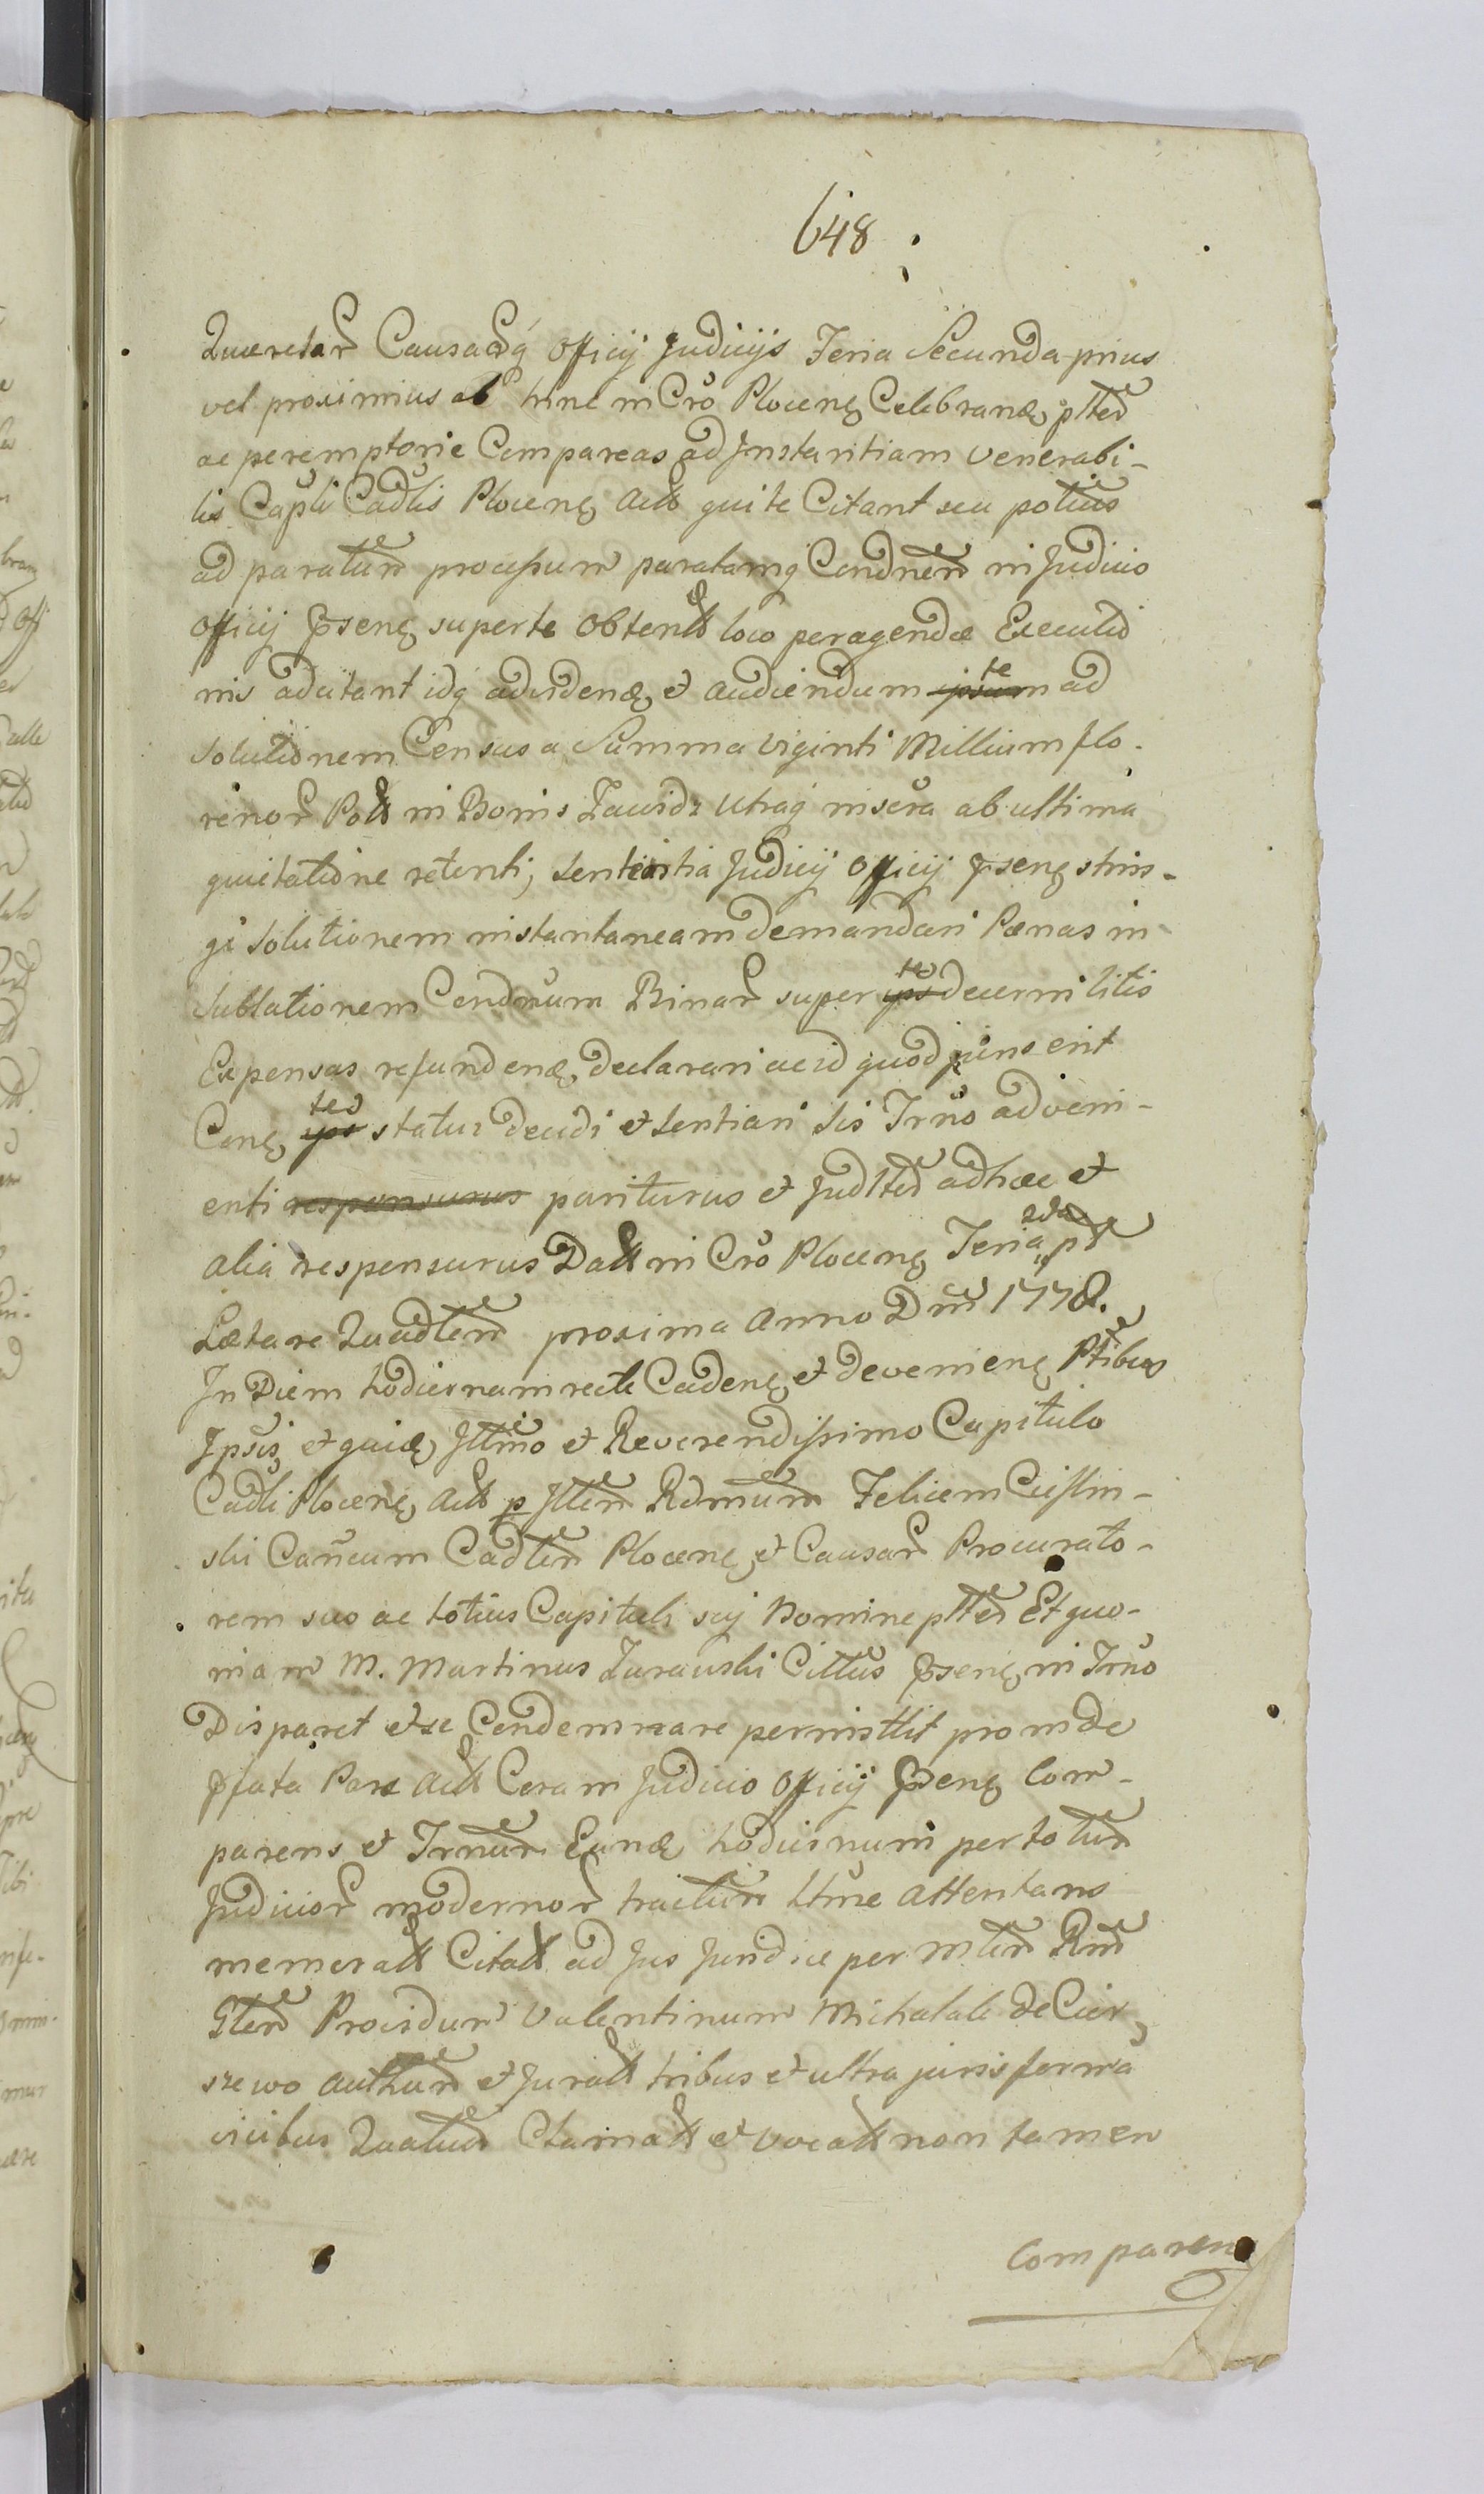 648
Quaeretar̃ Causarq́ Officij Judicijs Feria Secunda prius
vel proximius ab hinc in Crõ Plocenȩ Celebranđ pltẽr
ac peremptorie Compareas ad Jnstantiam Venerabi-
lis Capli Cadlis Plocenȩ Act qui te Citant seu potius
ad paratum processum paratamq Condnem̃ in Judicio
Officij Pñsenȩ super te Obtent loco peragendae Executio
nis adcitant idq ad videnđ et audiendum ipsum te ad
Solutionem Census a Summa Viginti Millium flo-
renor̃ Pol in Bonis Zawidz Utraq inscra ab ultima
quietatione retenti, Sententia Judicij Officij pñsenȩ strin-
gi Solutionem instantaneam demandari Paenas in
Sublationem Condnum Binar̃ super ips te decerni litis
Expensas refundenđ declarari ac id quod juris erit
Cone, ips teo statui decidi et Sentiari Sis Trno adveni-
enti responsurus pariturus et Judltẽr ad haec et
alia responsurus Dat in Crõ Plocenȩ Feria 2da pt
Laetare Quadlem̃ proxima Anno Dñi 1778.
In Diem hodiernam recte Cadenȩ et devenienȩ Ptibus
Jpsis et quidȩ Jllmo et Reverendissimo Capitulo
Cadli Plocenȩ Act p Jllem̃ Rdmum Felicem Cieslin-
ski Cañcum Cadlem̃ Plocenȩ et Causar̃ Procurato-
rem suo ac totius Capituli sui Nomine pltẽr Et quo-
niam M. Martinus Zurawski Cittus pñsenȩ in Trno
Disparet et se Condemnare permittit proinde
pfata Pars Act Coram Judicio Officij Pñsenȩ Com-
parens et Trnum Eundȩ hodiernum per totum
Judicior̃ modernor̃ tractum ltme Attentans
memorat Citat ad Jus Juridice per Mlem̃ Rm̃
Gtem̃ Providum Valentinum Michalak de Cier,
szewo authum et Jurat tribus et ultra juris forma
vicibus Quatuor Clamat et Vocat non tamen
Comparen